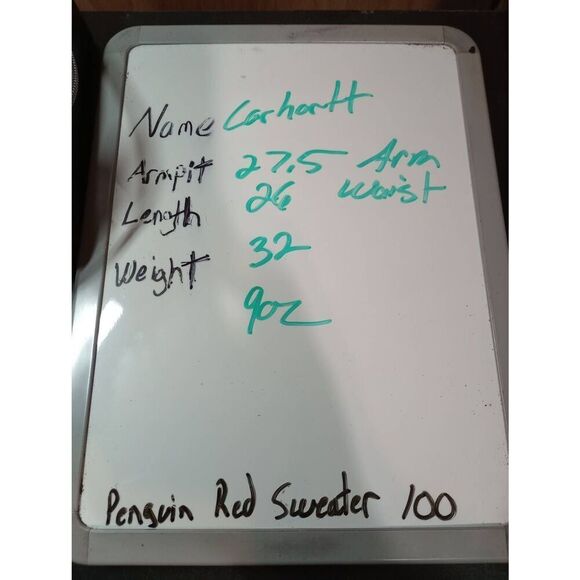 Name Carhartt
Armpit 27.5 Arm
Length 26 Waist
Weight 32
9oz
Penguin Red Sweater 100